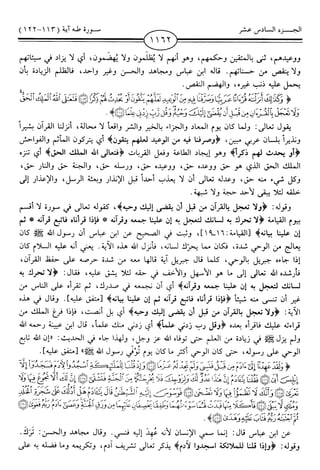 الجزء السادس عشر
١١٦٢
سورة طه آية (١١٣-١٢٢)
ووعيدهم، ثنى بالمتقين وحكمهم، وهو أنهم لا يُظلمون ولا يُهضمون، أي لا يزاد في سيئاتهم
ولا ينقص من حسناتهم. قاله ابن عباس ومجاهد والحسن وغير واحد، فالظلم الزيادة بأن
يحمل عليه ذنب غيره، والهضم النقص.
يقول تعالى: ولما كان يوم المعاد والجزاء بالخير والشر واقعاً لا محالة، أنزلنا القرآن بشيراً
ونذيراً بلسان عربي مبين، ﴿وصرفنا فيه من الوعيد لعلهم يتقون﴾ أي يتركون المآثم والفواحش
﴿أو يحدث لهم ذكراً﴾ وهو إيجاد الطاعة وفعل القربات ﴿فتعالى الله الملك الحق﴾ أي تنزه
الملك الحق الذي هو حق ووعده حق، ووعيده حق، ورسله حق، والجنة حق والنار حق،
وكل شيء منه حق، وعدله تعالى أن لا يعذب أحداً قبل الإنذار وبعثة الرسل، والإعذار إلى
خلقه لئلا يبقى لأحد حجة ولا شبهة.
وقوله: ﴿ولا تعجل بالقرآن من قبل أن يقضى إليك وحيه﴾، كقوله تعالى في سورة لا أقسم
بيوم القيامة ﴿لا تحرك به لسانك لتعجل به إن علينا جمعه وقرآنه * فإذا قرأناه فاتبع قرآنه * ثم
إن علينا بيانه﴾ [القيامة:١٦-١٩]، وثبت في الصحيح عن ابن عباس أن رسول الله ﷺ كان
يعالج من الوحي شدة، فكان مما يحرّك لسانه، فأنزل الله هذه الآية. يعني أنه عليه السلام كان
إذا جاءه جبريل بالوحي، كلما قال جبريل آية قالها معه من شدة حرصه على حفظ القرآن،
فأرشده الله تعالى إلى ما هو الأسهل والأخف في حقه لئلا يشق عليه، فقال: ﴿لا تحرك به
لسانك لتعجل به إن علينا جمعه وقرآنه﴾ أي أن نجمعه في صدرك، ثم تقرأه على الناس من
غير أن تنسى منه شيئاً ﴿فإذا قرأناه فاتبع قرآنه ثم إن علينا بيانه﴾ [متفق عليه]. وقال في هذه
الآية: ﴿ولا تعجل بالقرآن من قبل أن يقضى إليك وحيه﴾ أي بل أنصت، فإذا فرغ الملك من
قراءته عليك فاقرأه بعده ﴿وقل رب زدني علماً﴾ أي زدني منك علماً، قال ابن عيينة رحمه الله
ولم يزل ﷺ في زيادة من العلم حتى توفاه الله عز وجل، ولهذا جاء في الحديث: «إن الله تابع
الوحي على رسوله، حتى كان الوحي أكثر ما كان يوم تُوفّي رسول الله ﷺ» [متفق عليه].
عن ابن عباس قال: إنما سمي الإنسان لأنه عُهِدَ إليه فنسي. وقال مجاهد والحسن: تَرَكَ.
وقوله: ﴿وإذا قلنا للملائكة اسجدوا لآدم﴾ يذكر تعالى تشريف آدم، وتكريمه وما فضله به على